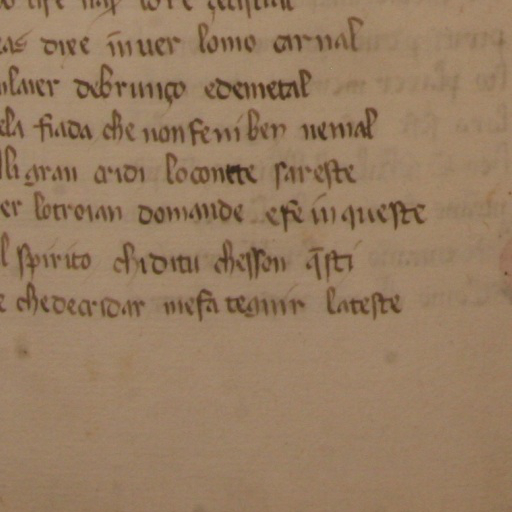 dire in uer lomo carnal
debrunço edemetal
ela fiada che non fe ni ben ne mal
lli gran cridi lo contte sareste
er lotroian domande efe in queste
l spirito chiditu chesson q̄sti
e chedecridar me fa tegnir lateste